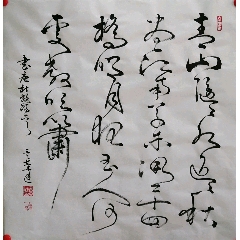 青山隱隱水迢迢秋
尽江南草未凋二十四
橋明月夜玉人何
處教吹簫
书唐杜牧诗